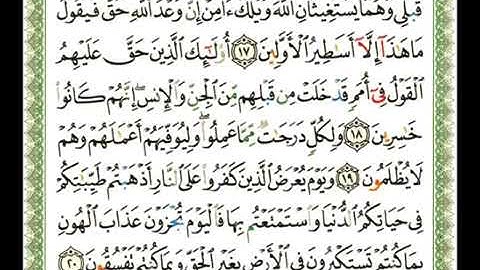 قَبْلِى وَهُمَا يَسْتَغِيثَانِ ٱللَّهَ وَيْلَكَ ءَامِنْ إِنَّ وَعْدَ ٱللَّهِ حَقٌّ فَيَقُولُ
مَا هَٰذَآ إِلَّآ أَسَٰطِيرُ ٱلْأَوَّلِينَ ۝١٧ أُو۟لَٰٓئِكَ ٱلَّذِينَ حَقَّ عَلَيْهِمُ
ٱلْقَوْلُ فِىٓ أُمَمٍ قَدْ خَلَتْ مِن قَبْلِهِم مِّنَ ٱلْجِنِّ وَٱلْإِنسِ ۖ إِنَّهُمْ كَانُوا۟
خَٰسِرِينَ ۝١٨ وَلِكُلٍّ دَرَجَٰتٌ مِّمَّا عَمِلُوا۟ ۖ وَلِيُوَفِّيَهُمْ أَعْمَٰلَهُمْ وَهُمْ
لَا يُظْلَمُونَ ۝١٩ وَيَوْمَ يُعْرَضُ ٱلَّذِينَ كَفَرُوا۟ عَلَى ٱلنَّارِ أَذْهَبْتُمْ طَيِّبَٰتِكُمْ
فِى حَيَاتِكُمُ ٱلدُّنْيَا وَٱسْتَمْتَعْتُم بِهَا فَٱلْيَوْمَ تُجْزَوْنَ عَذَابَ ٱلْهُونِ
بِمَا كُنتُمْ تَسْتَكْبِرُونَ فِى ٱلْأَرْضِ بِغَيْرِ ٱلْحَقِّ وَبِمَا كُنتُمْ تَفْسُقُونَ ۝٢٠